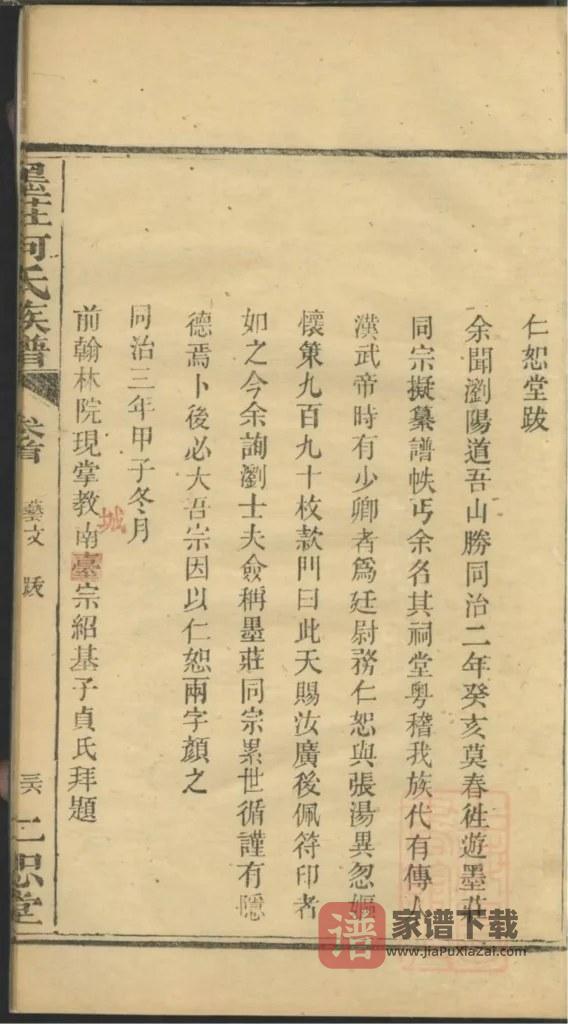 仁恕堂跋
余聞瀏陽道吾山勝同治二年癸亥莫春徃遊墨莊
同宗擬纂譜帙丐余名其祠堂粤稽我族代有傳人
漢武帝時有少卿者爲廷尉務仁恕與張湯異忽嫗
懷策九百九十枚款門曰此天賜汝廣後佩符印者
如之今余詢瀏士大夫僉稱墨莊同宗累世循謹有隱
德焉卜後必大吾宗因以仁恕兩字顏之
同治三年甲子冬月
前翰林院現掌教南臺宗紹基子貞氏拜題
城
墨莊何氏族譜
卷首
藝文 跋
三六
仁恕堂
谱 家谱下载
www.jiaPuXiazai.com